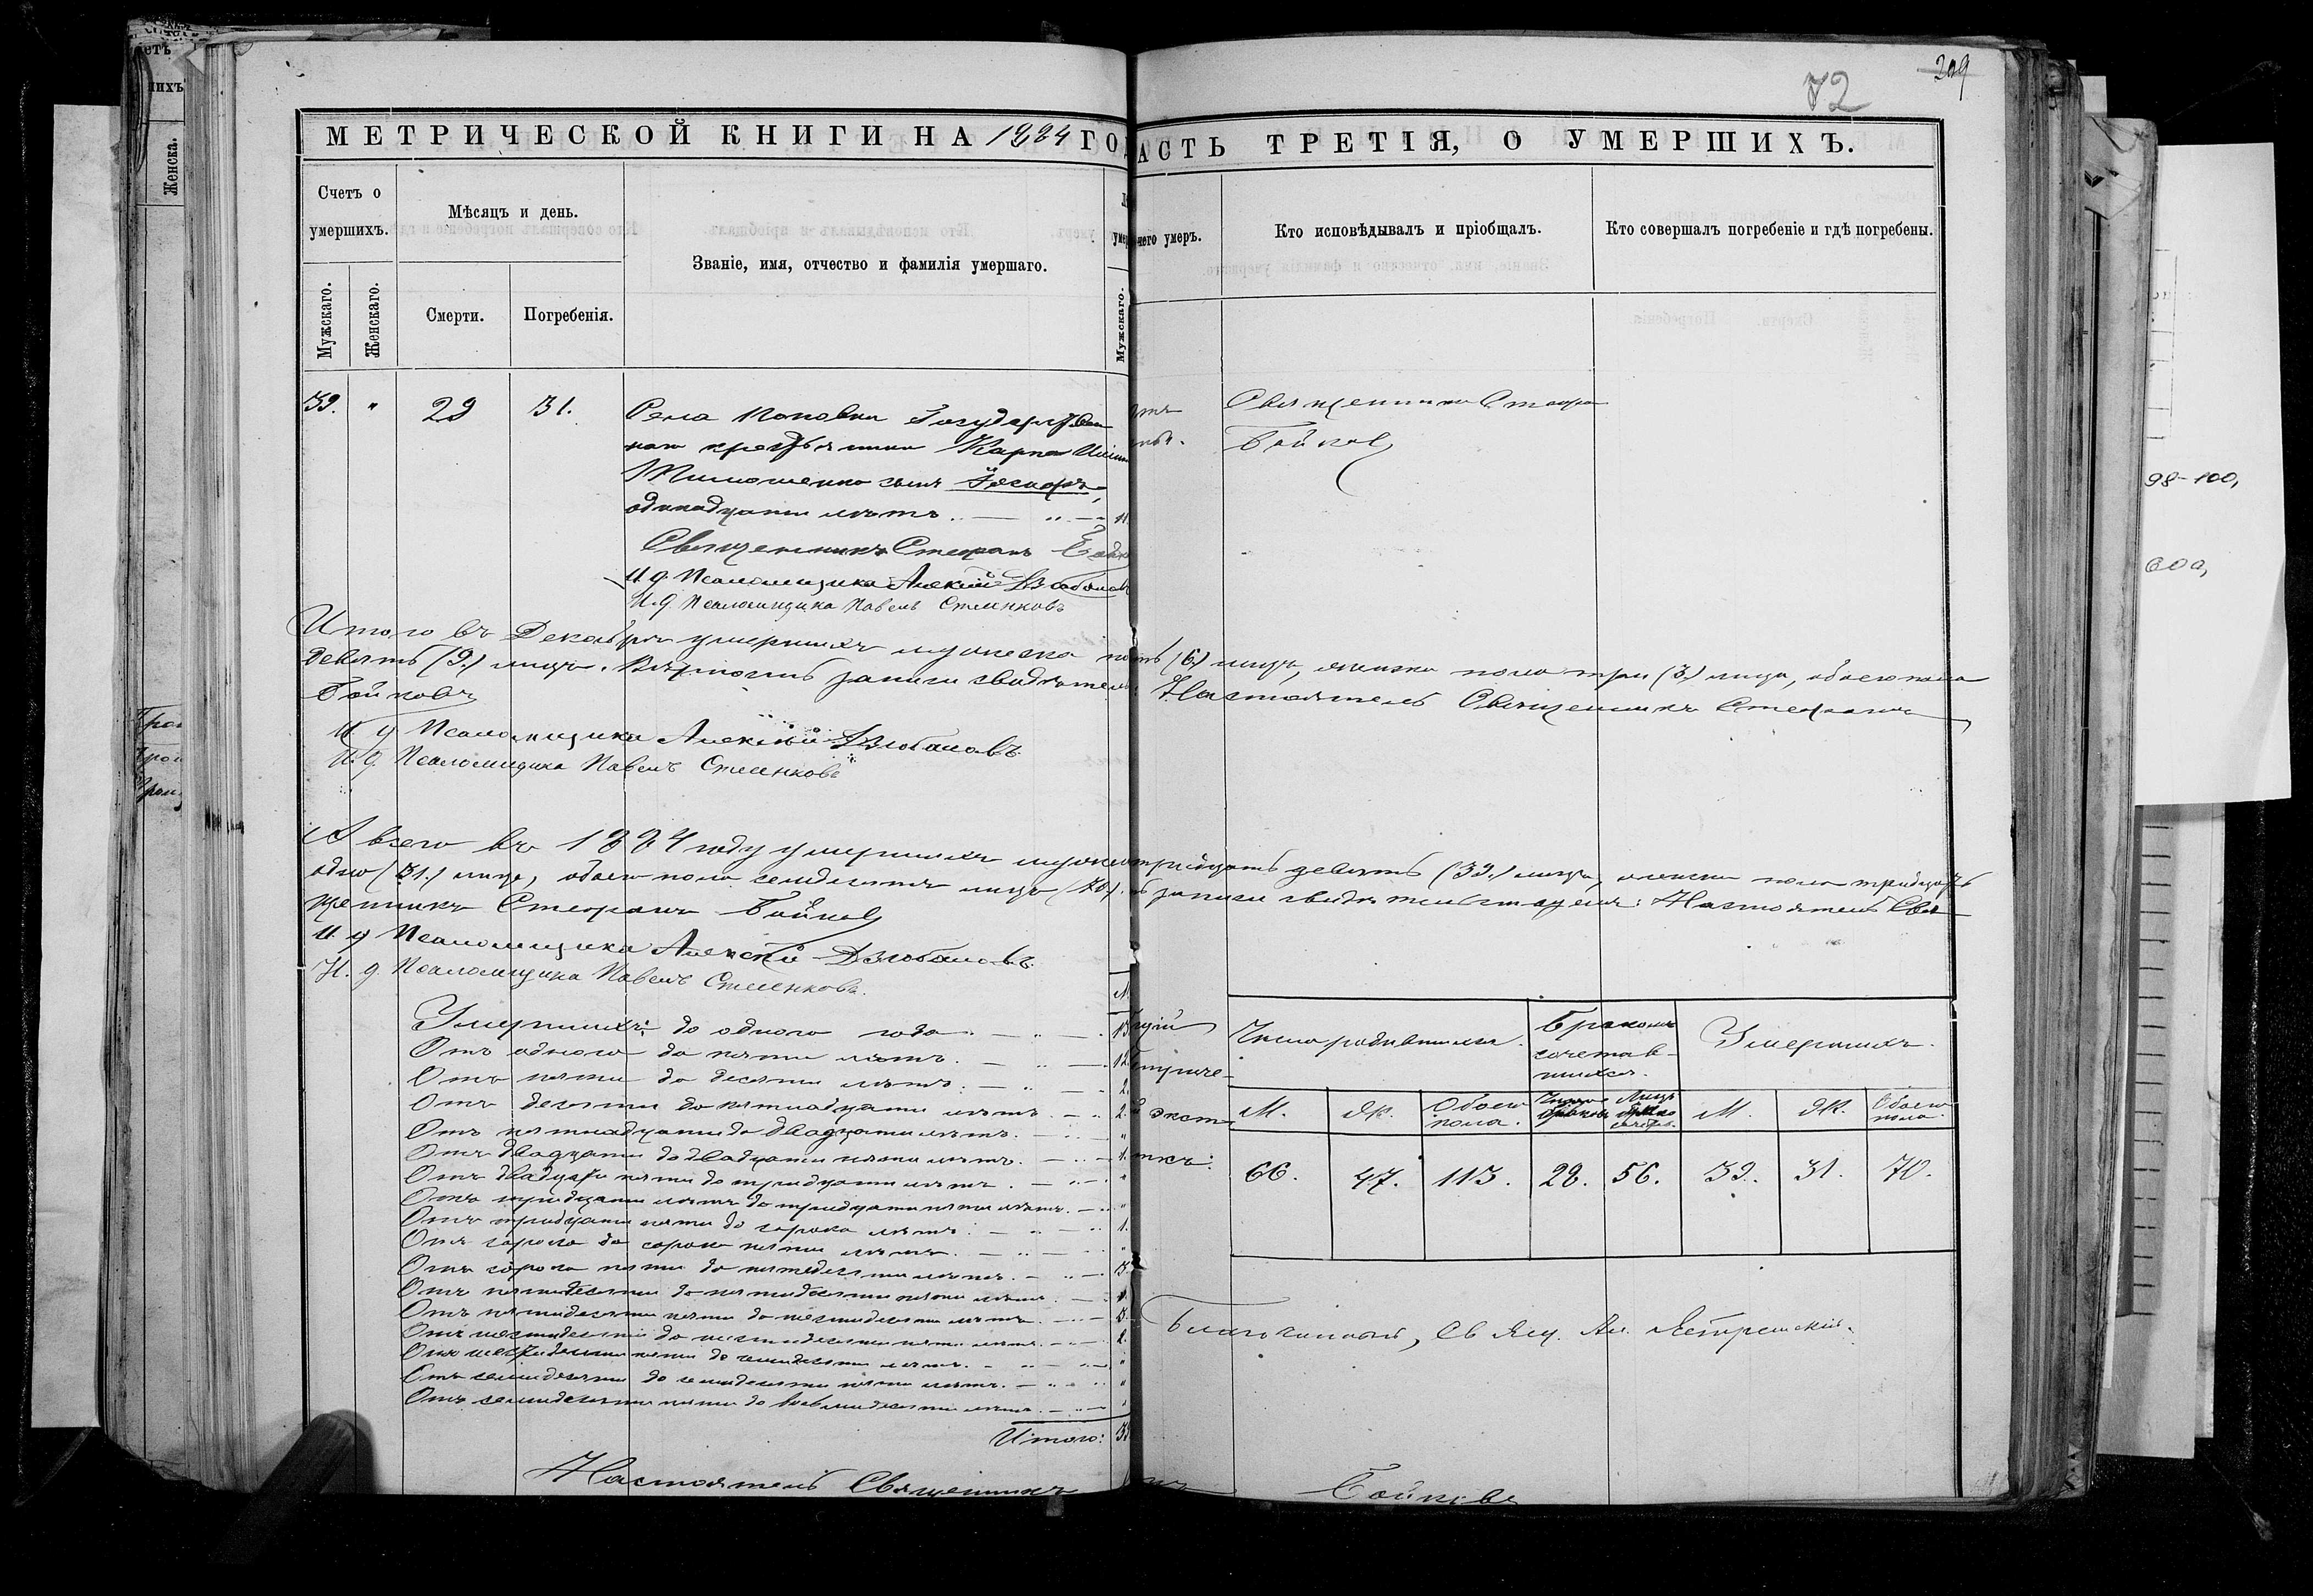 72
209
МЕТРИЧЕСКОЙ КНИГИ НА 1884 ГО
АСТЬ ТРЕТІЯ, О УМЕРШИХЪ.
Счетъ о умершихъ.
Мужскаго.
Женскаго.
Мѣсяцъ и день.
Смерти.
Погребенія.
Званіе, имя, отчество и фамилія умершаго.
Мужскаго.
чего умеръ.
Кто исповѣдывалъ и пріобщалъ.
Кто совершалъ погребеніе и гдѣ погребены.
39. " 29 31.
Села Поповки Государствен
наго крестьянина Карпа
Тимошенко сынъ
одинадцати лѣтъ. — " — 11.
Священникъ Стефанъ Бойко
И. д. Псаломщика Алексій Дзюбановъ
И. д. Псаломщика Павелъ
Священникъ Стефанъ
Бойковъ
Итого въ Декабрѣ умершихъ мужеска по
ть (6.) лицъ, женска пола три (3.) лица, обоего пола
девять (9.) лицъ. Вѣрность записи свидѣтель
Настоятель Священникъ Стефанъ
Бойковъ
И. д. Псаломщика Алексій Дзюбановъ
И. д. Псаломщика Павелъ
А всего въ 1884 году умершихъ мужес
тридцать девять (39.) лицъ, женска пола тридцать
одно (31.) лице, обоего пола семдесятъ лицъ (70).
записи свидѣтельствуемъ: Настоятель Свя-
щенникъ Стефанъ Бойковъ
И. д. Псаломщика Алексій Дзюбановъ
И. д. Псаломщика Павелъ
Умершихъ: до одного года. — " — 13
Отъ одного до пяти лѣтъ. — " — 12
Отъ пяти до десяти лѣтъ. — " — 2.
Отъ десяти до пятнадцати лѣтъ. — " 2.
Отъ пятнадцати до двадцати лѣтъ. — " — "
Отъ двадцати до двадцати пяти лѣтъ. — " — 1.
Отъ двадцати пяти до тридцати лѣтъ. — " — "
Отъ тридцати лѣтъ до тридцати пяти лѣтъ. — " "
Отъ тридцати пяти до сорока лѣтъ. — " — " 1.
Отъ сорока до сорока пяти лѣтъ. — " — "
Отъ сорока пяти до пятидесяти лѣтъ. — " —
Отъ пятидесяти до пятидесяти пяти лѣтъ. —
Отъ пятидесяти пяти до шестидесяти лѣтъ. —
Отъ шестидесяти до шестидесяти пяти лѣтъ. — 2.
Отъ шестидесяти пяти до семидесяти лѣтъ. — " — "
Отъ семидесяти до семидесяти пяти лѣтъ. — " "
Отъ семидесяти пяти до восьмидесяти лѣтъ. — " —
Итого: 39
Настоятель Священникъ
Бойковъ
Число родившихся.
Бракомъ
сочетав-
шихся.
Умершихъ.
М. Ж. Обоего пола.
Число браковъ Лицъ
М. Ж. Обоего пола.
66. 47. 113. 28. 56. 39. 31. 70.
Благочинный, Свящ. Ал.
98-100,
600,
Женска.